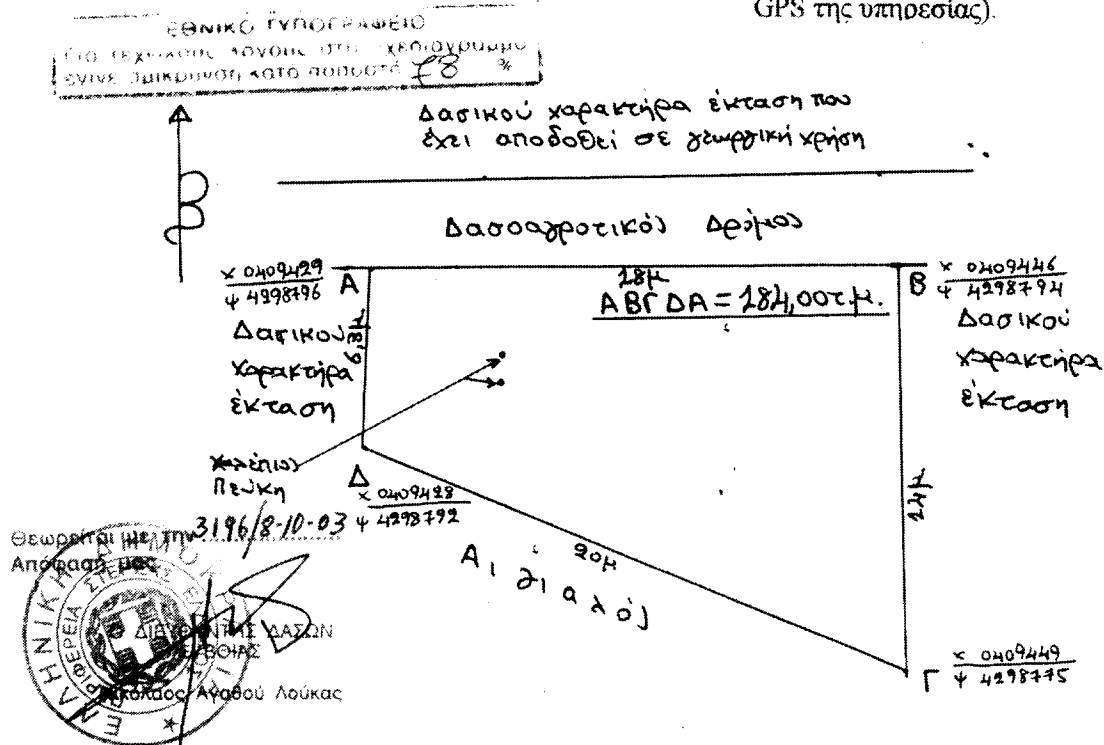 GPS της υπηρεσίας).
ΕΘΝΙΚΟ ΤΥΠΟΓΡΑΦΕΙΟ
Για τεχνικούς λόγους στο σχεδιάγραμμα
έγινε σμίκρυνση κατά ποσοστό 78 %
Δασικού χαρακτήρα έκταση που
έχει αποδοθεί σε γεωργική χρήση
Β
Δασοαγροτικός Δρόμος
x 0409429
ψ 4298796
Α
18μ
ΑΒΓΔΑ = 184,00τ.μ.
Β
x 0409446
ψ 4298794
Δασικού
χαρακτήρα
έκταση
Δασικού
χαρακτήρα
έκταση
Χαλέπιος
Πεύκη
Δ
x 0409428
ψ 4298792
14μ
20μ
Αιγιαλός
Γ
x 0409449
ψ 4298775
Θεωρείται με την 3196/8-10-03
Απόφασή μας
Ο ΔΙΕΥΘΥΝΤΗΣ ΔΑΣΩΝ
ΕΥΒΟΙΑΣ
Νικόλαος Αγαθού Λούκας
ΕΛΛΗΝΙΚΗ